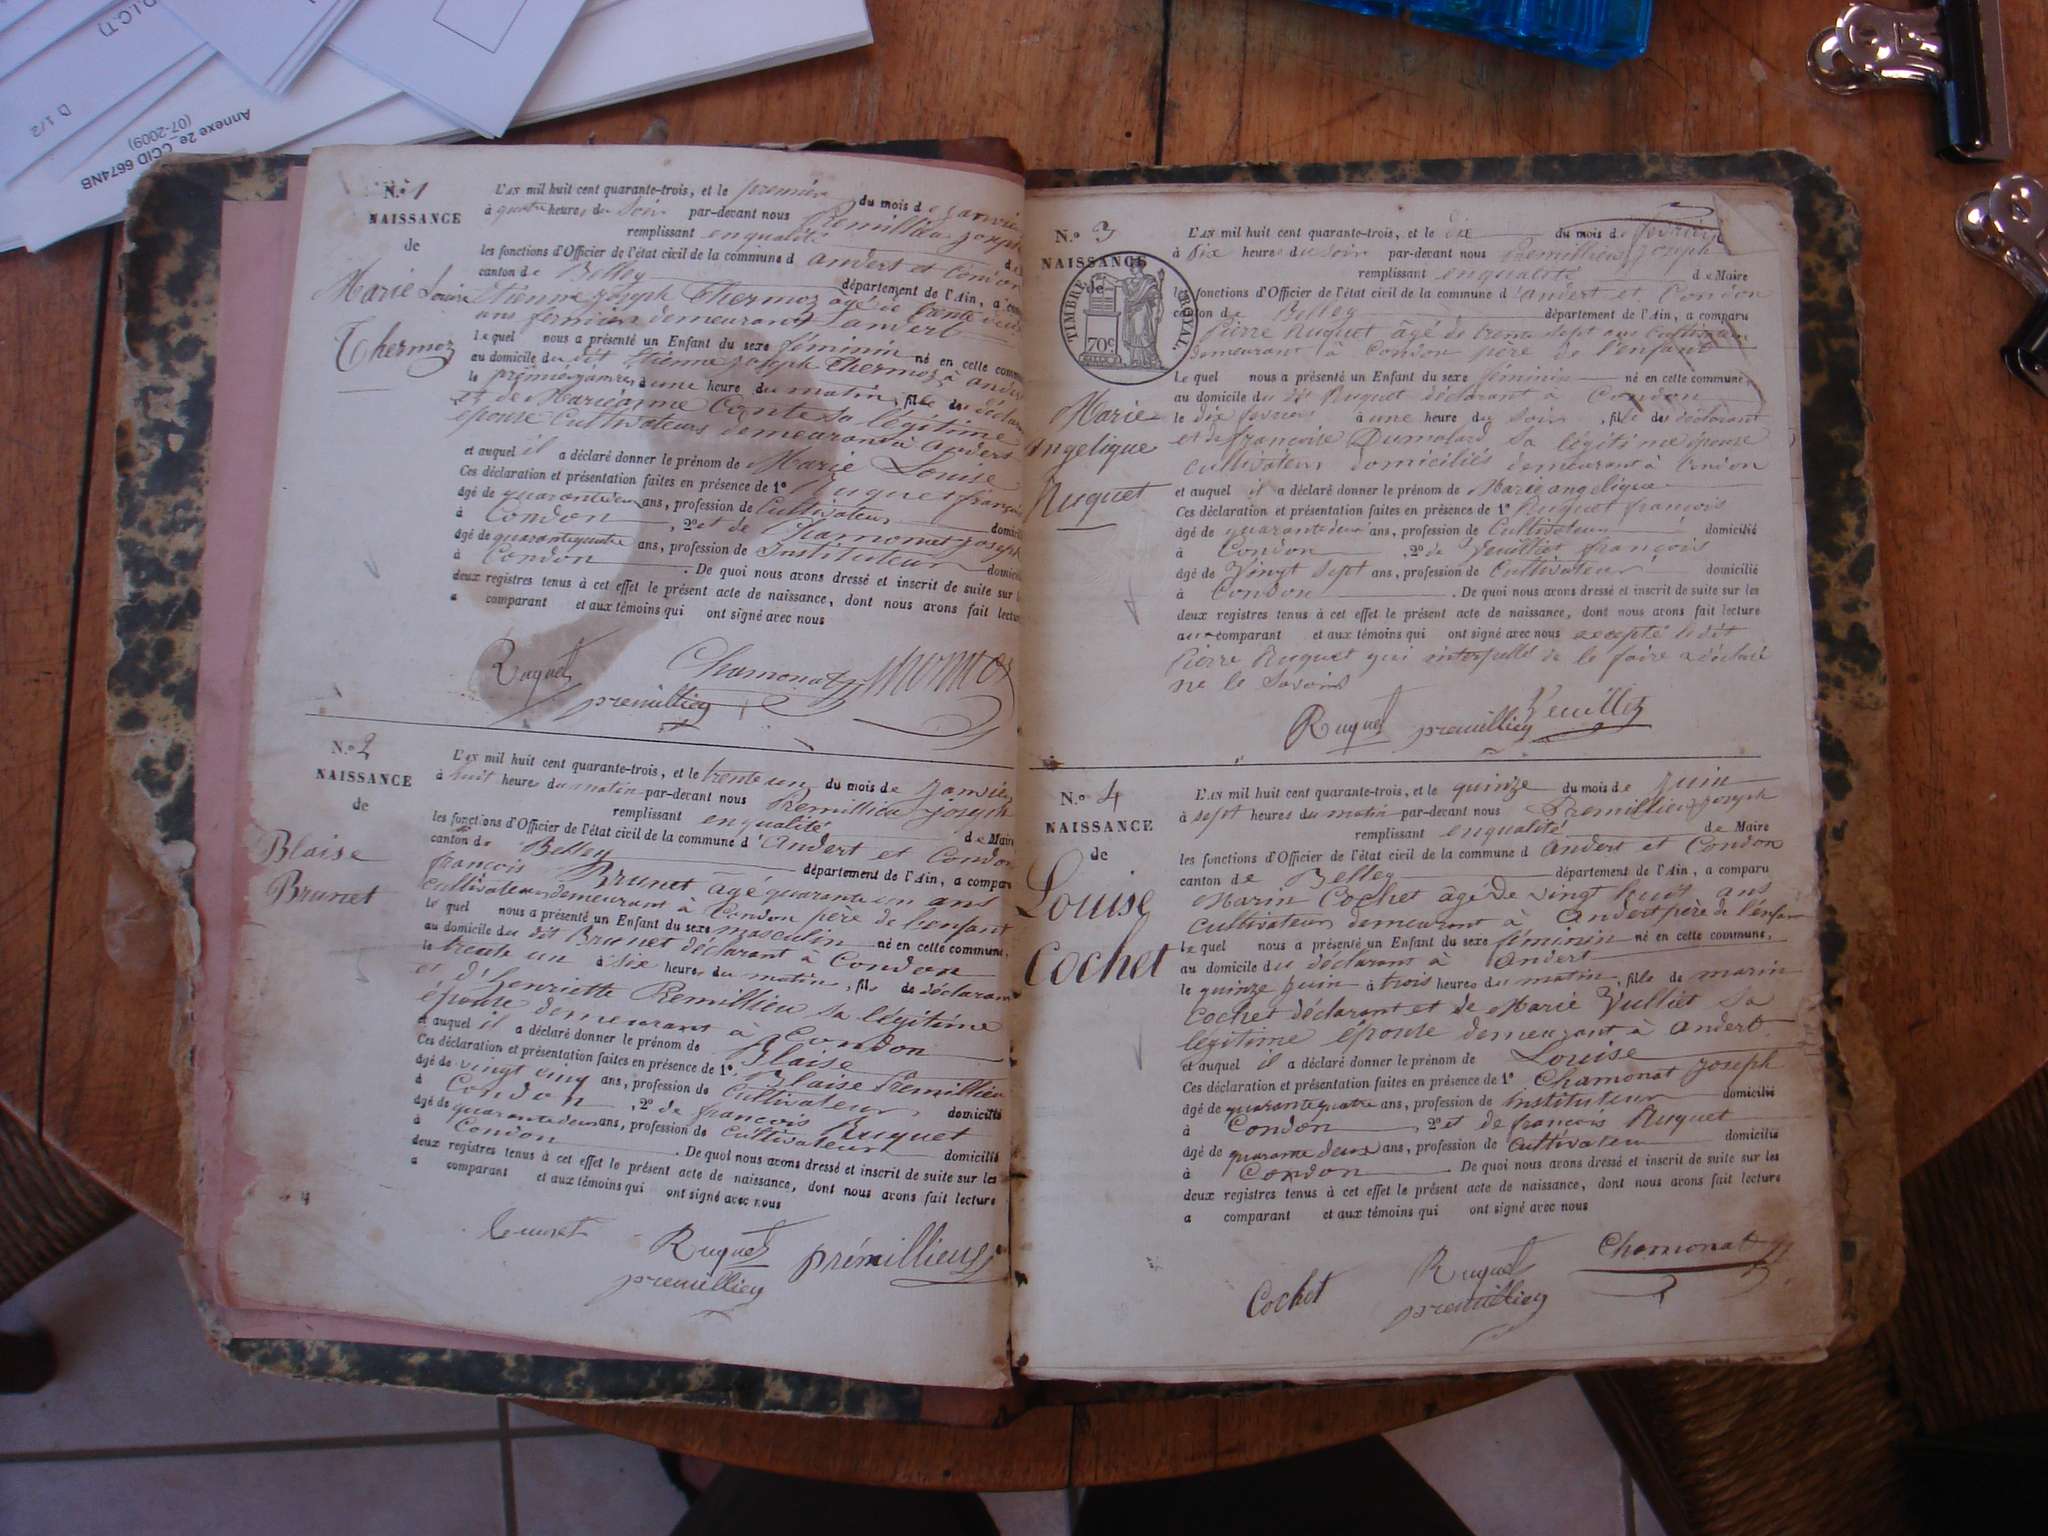 D.I.C.T)
D 1/2
Annexe 2e_CCID 6674NB
(07-2009)
N.º 1
NAISSANCE
de
Marie Louise
Thermoz
L'AN mil huit cent quarante-trois, et le premier du mois de janvier
à quatre heures du soir par-devant nous Premillieu joseph
remplissant en qualité
les fonctions d'Officier de l'état civil de la commune d andert et Condon
canton de Belley département de l'Ain, a comp
Etienne joseph Thermoz agé de trente deux
ans fermier demeurant andert
Le quel nous a présenté un Enfant du sexe féminin né en cette commune
au domicile du dit Etienne joseph Thermoz à andert
le premier janvier à une heure du matin, fille du déclarant
et de Mariéanne Conte sa légitime
épouse Cultivateurs demeurant à andert
et auquel il a déclaré donner le prénom de Marie Louise
Ces déclaration et présentation faites en présence de 1º Ruquet françois
âgé de quarante deux ans, profession de Cultivateur domicilié
à Condon , 2º et de Chamonat joseph
âgé de quarante quatre ans, profession de Instituteur domicilié
à Condon . De quoi nous avons dressé et inscrit de suite sur les
deux registres tenus à cet effet le présent acte de naissance, dont nous avons fait lecture
a comparant et aux témoins qui ont signé avec nous
Ruquet Chamonat thermoz
premillieu
N.º 2
NAISSANCE
de
Blaise
Brunet
L'AN mil huit cent quarante-trois, et le trente un du mois de janvier
à huit heures du matin par-devant nous Premillieu joseph
remplissant en qualité de Maire
les fonctions d'Officier de l'état civil de la commune d'andert et Condon
canton de Belley département de l'Ain, a comparu
françois Brunet âgé quarante un ans
cultivateur demeurant à Condon père de l'enfant
Le quel nous a présenté un Enfant du sexe masculin né en cette commune,
au domicile du dit Brunet déclarant à Condon
le trente un à six heures du matin, fils de déclarant
et d'henriette Premillieu sa légitime
épouse demeurant à Condon
et auquel il a déclaré donner le prénom de Blaise
Ces déclaration et présentation faites en présence de 1º Blaise Premillieu
âgé de vingt cinq ans, profession de Cultivateur, domicilié
à Condon , 2º de françois Ruquet
âgé de quarante deux ans, profession de Cultivateur domicilié
à Condon . De quoi nous avons dressé et inscrit de suite sur les
deux registres tenus à cet effet le présent acte de naissance, dont nous avons fait lecture
a comparant et aux témoins qui ont signé avec nous
Ruquet prémillieux
premillieu
N.º 3
NAISSANCE
de
TIMBRE ROYAL.
70c
Marie
Angelique
Ruquet
L'AN mil huit cent quarante-trois, et le dix du mois de février
à dix heures du soir par-devant nous Premillieu joseph
remplissant en qualité de Maire
les fonctions d'Officier de l'état civil de la commune d'andert et Condon
canton de Belley département de l'Ain, a comparu
Pierre Ruquet âgé de trente sept ans cultivateur
demeurant à Condon père de l'enfant
Le quel nous a présenté un Enfant du sexe féminin né en cette commune,
au domicile du dit Ruquet déclarant à Condon
le dix fevrier à une heure du soir, fille du déclarant
et de françoise Dumolard sa légitime épouse
cultivateurs domiciliés demeurant à Condon
et auquel il a déclaré donner le prénom de Marie angelique
Ces déclaration et présentation faites en présence de 1º Ruquet françois
âgé de quarante deux ans, profession de Cultivateur domicilié
à Condon , 2º de Veuillet françois
âgé de Vingt sept ans, profession de Cultivateur domicilié
à Condon . De quoi nous avons dressé et inscrit de suite sur les
deux registres tenus à cet effet le présent acte de naissance, dont nous avons fait lecture
aux comparant et aux témoins qui ont signé avec nous excepté le dit
Pierre Ruquet qui interpellé de le faire a déclaré
ne le savoir
Ruquet premillieu Veuillet
N.º 4
NAISSANCE
de
Louise
Cochet
L'AN mil huit cent quarante-trois, et le quinze du mois de juin
à sept heures du matin par-devant nous Premillieu joseph
remplissant en qualité de Maire
les fonctions d'Officier de l'état civil de la commune d andert et Condon
canton de Belley département de l'Ain, a comparu
Marin Cochet âgé de vingt huit ans
cultivateur demeurant à andert père de l'enfant
Le quel nous a présenté un Enfant du sexe féminin né en cette commune,
au domicile du déclarant à andert
le quinze juin à trois heures du matin, fille de marin
Cochet déclarant et de Marie Vulliet sa
légitime épouse demeurant à andert.
et auquel il a déclaré donner le prénom de Louise
Ces déclaration et présentation faites en présence de 1º Chamonat joseph
âgé de quarante quatre ans, profession de Instituteur domicilié
à Condon , 2º et de françois Ruquet
âgé de quarante deux ans, profession de Cultivateur domicilié
à Condon . De quoi nous avons dressé et inscrit de suite sur les
deux registres tenus à cet effet le présent acte de naissance, dont nous avons fait lecture
a comparant et aux témoins qui ont signé avec nous
Cochet Ruquet Chamonat
premillieu